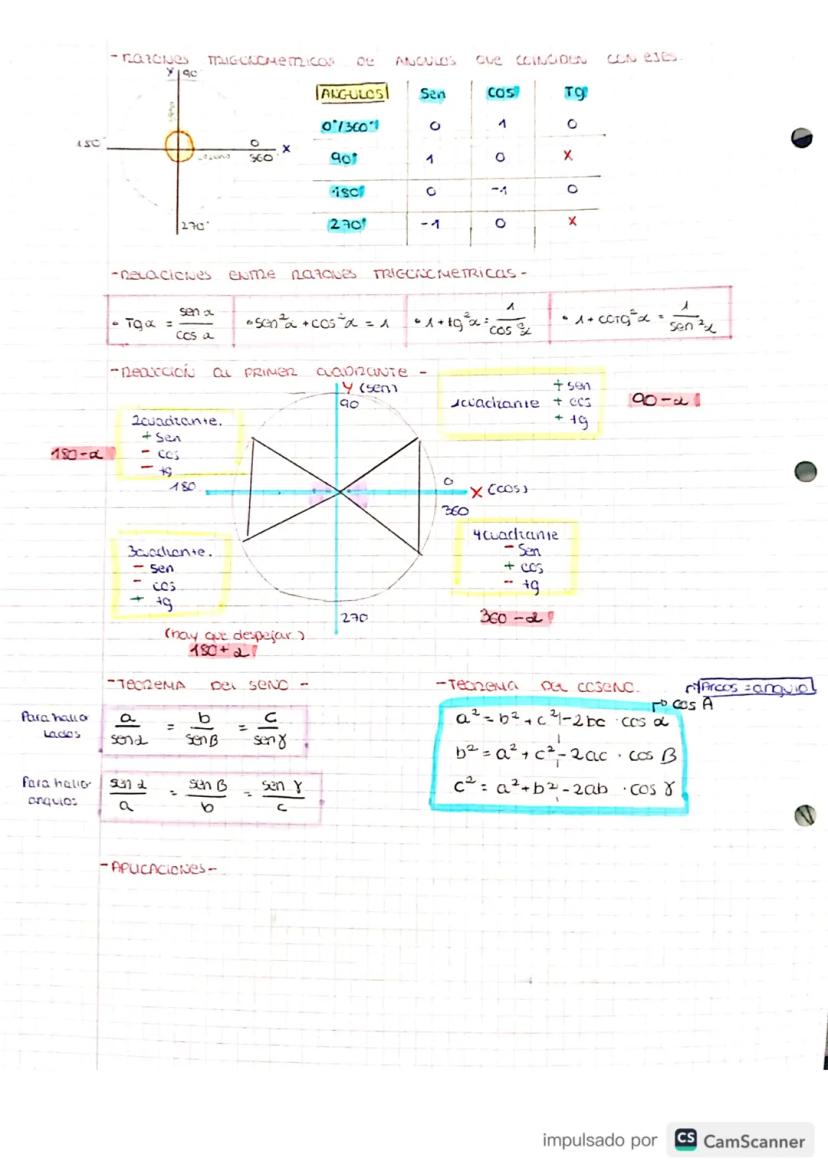 - RAZONES TRIGONOMETRICAS DE ANGULOS QUE COINCIDEN CON EJES.
Y 90°
180° 0 360° X
270°
ANGULOS Sen cos Tg
0°/360° 0 1 0
90° 1 0 X
180° 0 -1 0
270° -1 0 X
- RELACIONES ENTRE RAZONES TRIGONOMETRICAS -
• Tg α = sen α / cos α • sen²α + cos²α = 1 • 1 + tg²α = 1 / cos²α • 1 + COTG²α = 1 / sen²α
- REDUCCIÓN AL PRIMER CUADRANTE -
Y (sen)
90
1cuadrante + sen + cos + tg
90 - α
2cuadrante.
+ Sen
- cos
- tg
180 - α
180
0
360
X (cos)
3cuadrante.
- sen
- cos
+ tg
4cuadrante
- Sen
+ cos
- tg
270
360 - α
(hay que despejar)
180 + α
- TEOREMA DEL SENO -
Para hallar lados
a / sen α = b / sen β = c / sen γ
Para hallar angulos
sen α / a = sen β / b = sen γ / c
- TEOREMA DEL COSENO.
Arcos = angulo
cos A
a² = b² + c² - 2bc · cos α
b² = a² + c² - 2ac · cos β
c² = a² + b² - 2ab · cos γ
- APLICACIONES -
impulsado por CS CamScanner